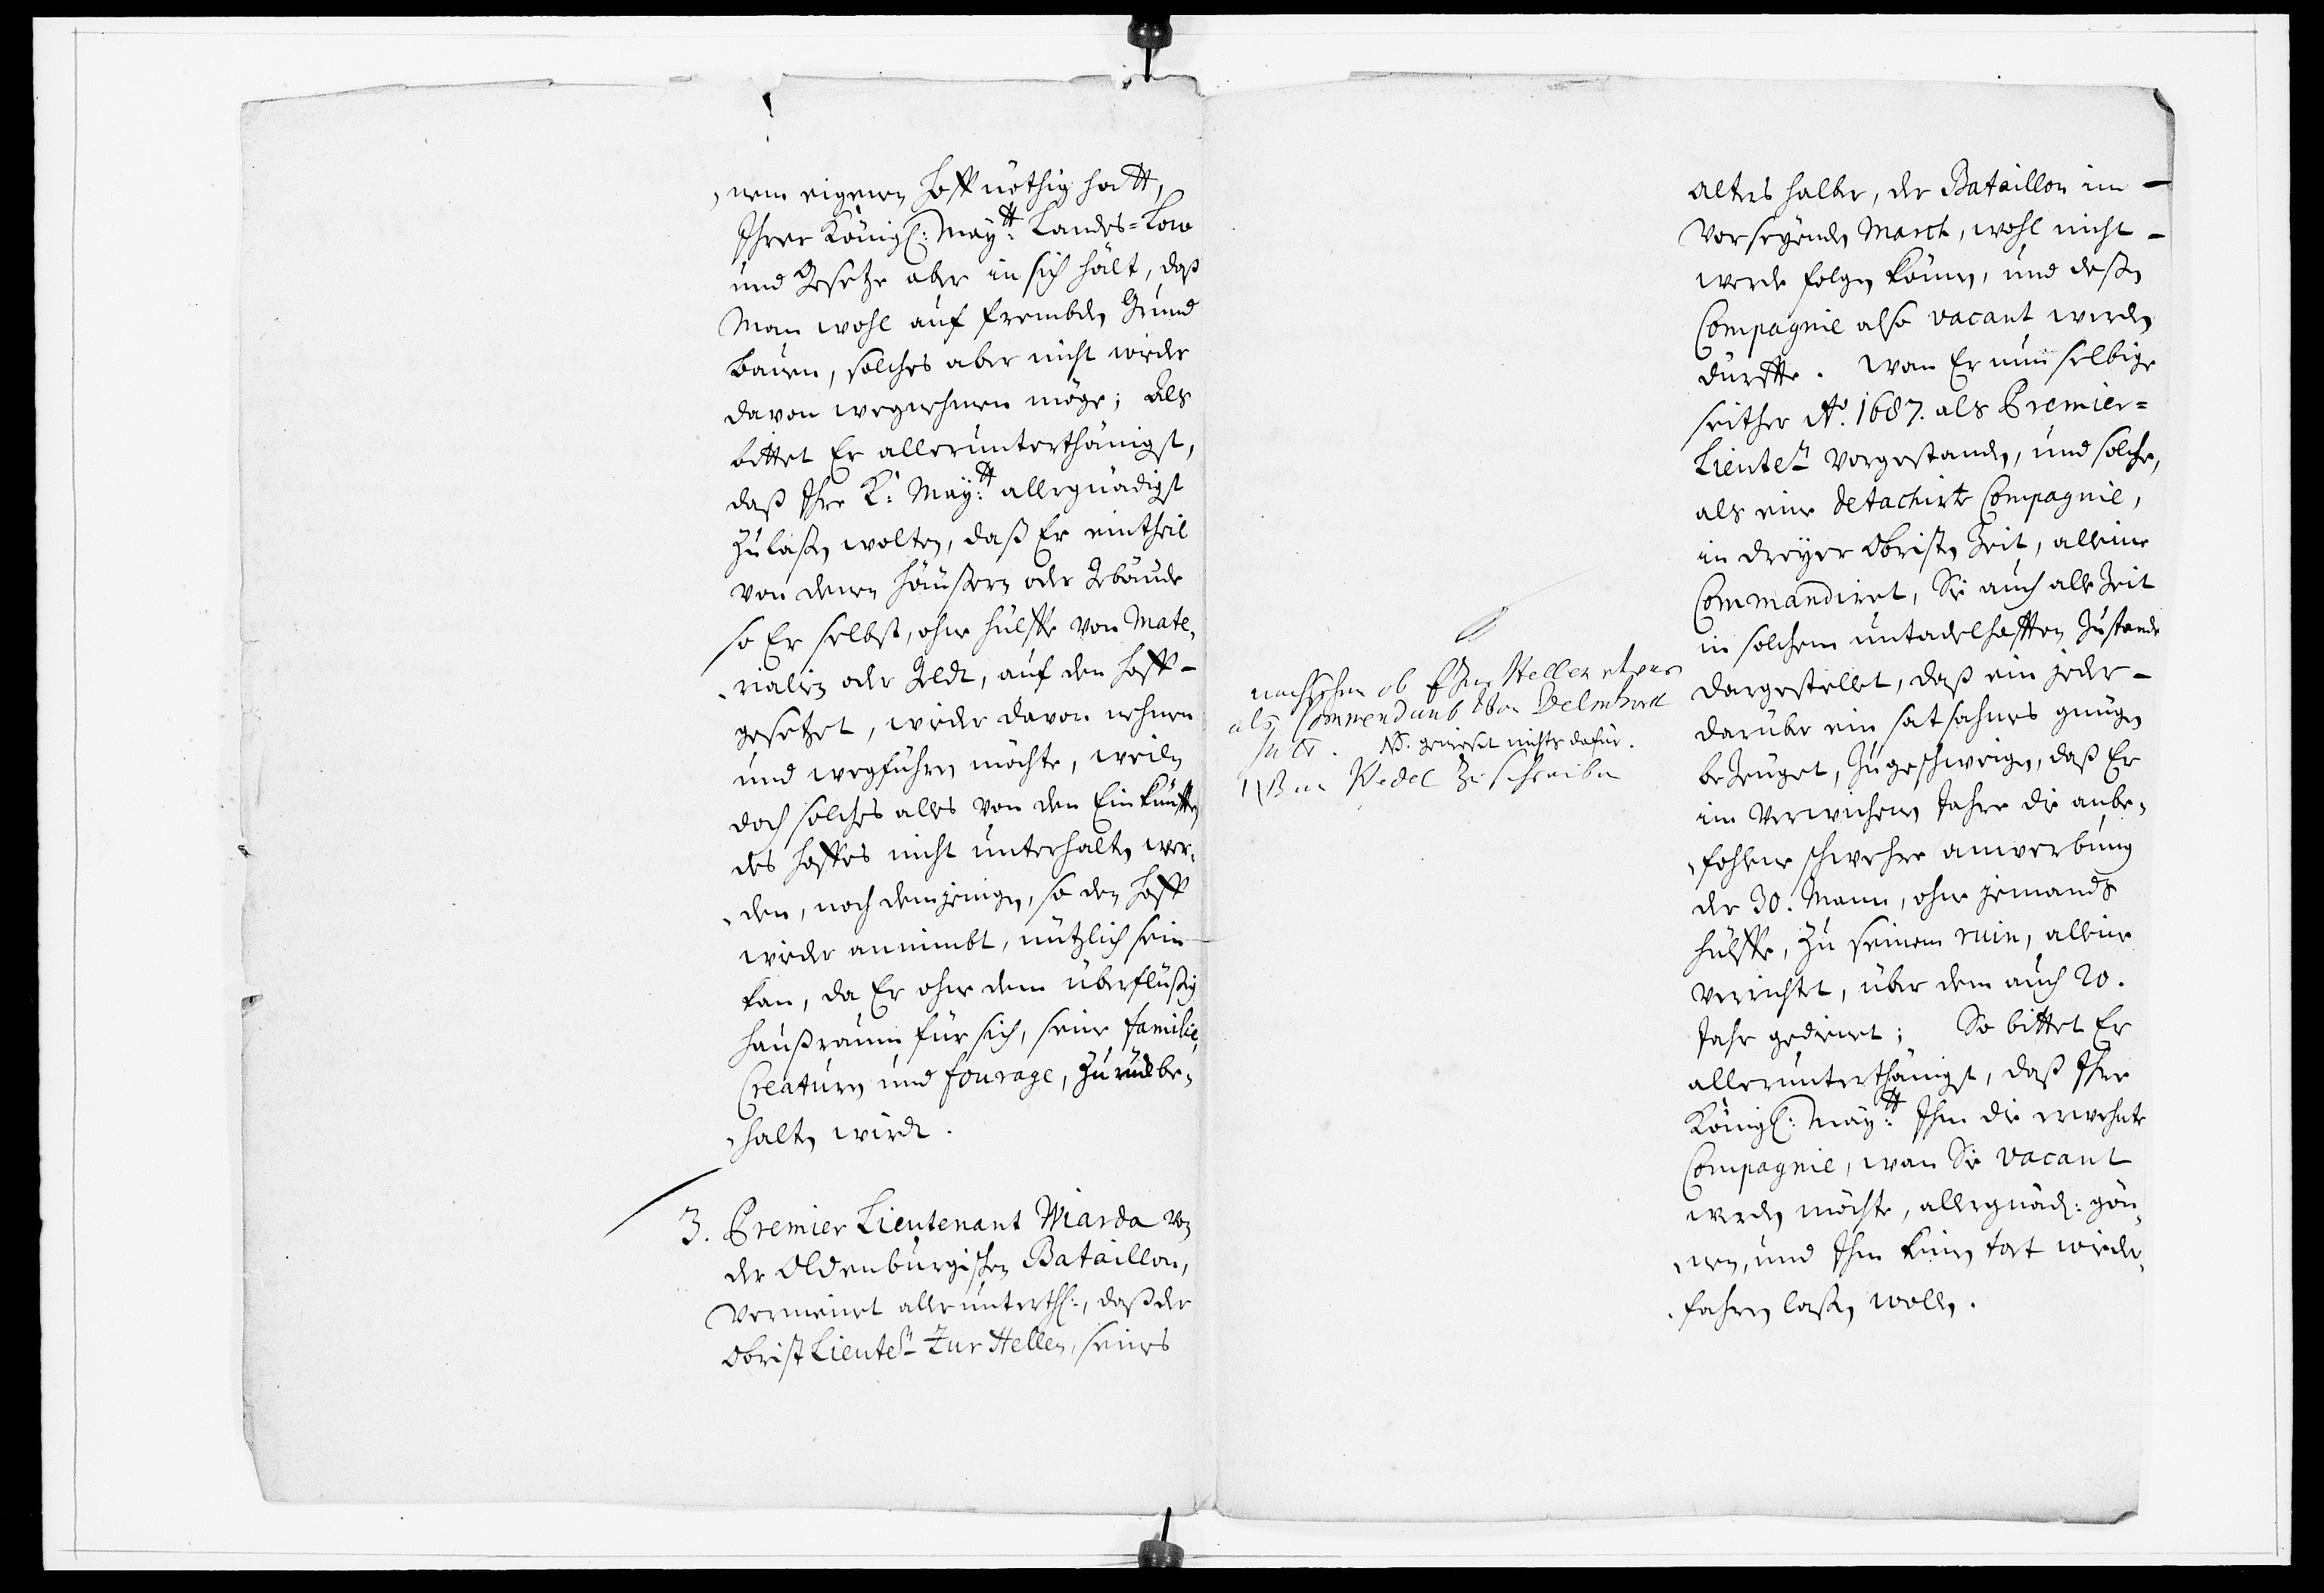 nem eigenen Hoff nöthig hatt,
Ihrer Königl: May:tt Landes-Low
und Gesetze aber in sich hält, daß
Man wohl auf frembden Grund
bauen, solches aber nicht wieder
davon wegnehmen möge; Als
bittet Er allerunterthänigst,
daß Ihre K: May:tt allergnädigst
zulaßen wolten, daß Er eintheil
von denen Häußern oder Gebäude
so Er selbst, ohne hülffe von Mate-
rialien oder Geldt, auf den Hoff-
gesetzet, wieder davon nehmen
und wegführen möchte, weiln
doch solches alles von den Einkünfften
des Hoffes nicht unterhalten wer-
den, noch demjenigen, so den Hoff
wieder annimbt, nützlich sein
kan, da Er ohne dem überflüßig
Haußraum für sich, seine familie,
Creaturen und fourage, zurückbe-
halten wird.
3. Premier Lieutenant Wiarda von
der Oldenburgischen Bataillon,
vermeinet allerunterth:, daß der
Obrist Lieutent Zur Hellen, seines
Alters halber, der Bataillon im
Vorseyenden March, wohl nicht
werde folgen können, und deßen
Compagnie also vacant werden
dürffte. Wan Er nun selbige
seither Ao. 1687. als Premier-
Lieutent vorgestanden, und solche,
als eine detachirte Compagnie,
in dreyer Obristen Zeit, alleine
Commandiret, Sie auch alle Zeit
in solchem untadelhafften Zustande
dargestellet, daß ein jeder
darüber ein satsahmes gnügen
bezeuget, Zugeschweigen, daß Er
im verwichenen Jahre die anbe-
fohlene schwehre anwerbung
der 30. Mann, ohne jemands
hülffe, zu seinem ruin, alleine
verrichtet, über dem auch 20.
Jahr gedienet; So bittet Er
allerunterthänigst, daß Ihre
Königl: May:tt Ihm die erwehnte
Compagnie, wan Sie vacant
werden möchte, allergnäd: gön-
nen, und Ihm keinen tort wieder-
fahren laßen wollen.
nachsehen ob Zur Hellen etwas
als Commendant von Delmhorst
NB. genießet nichts dafür.
an Wedel zu schreiben